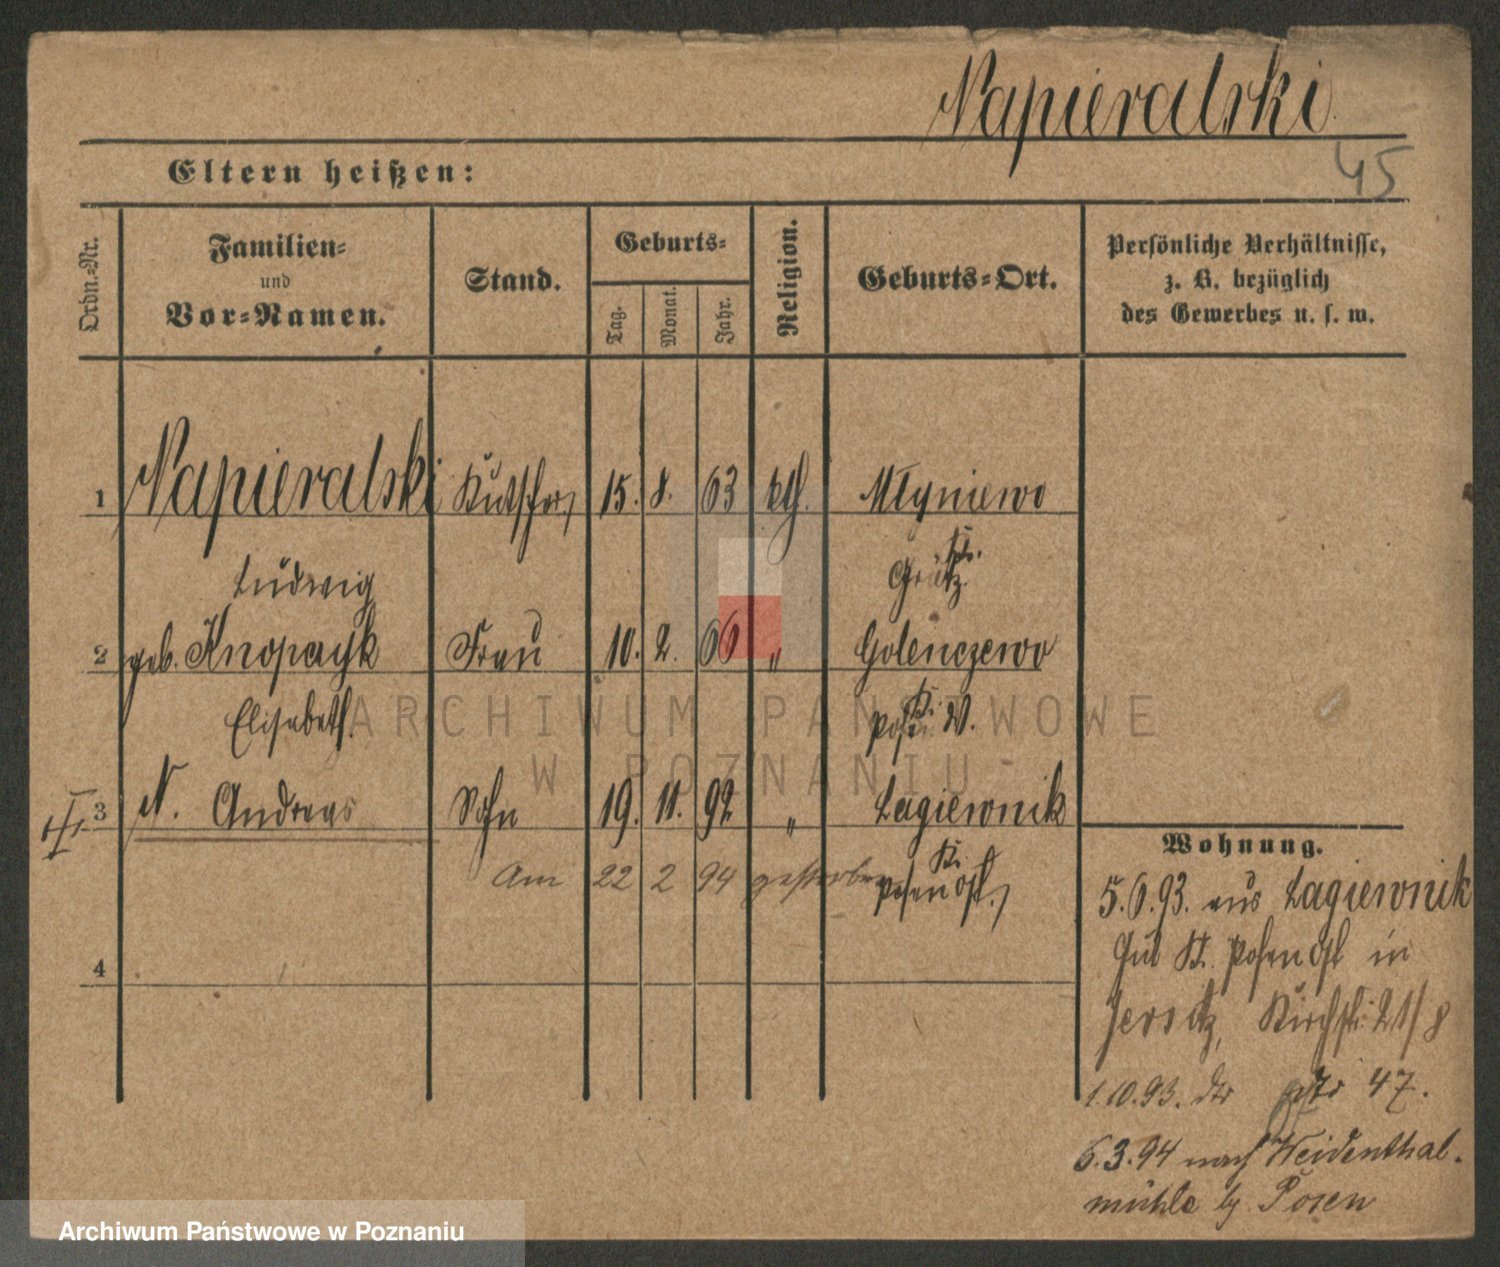 Napieralski.
45
Eltern heißen:
Ordn.=Nr.
Familien=
und
Vor=Namen.
Stand.
Geburts=
Tag.
Monat.
Jahr.
Religion.
Geburts=Ort.
Persönliche Verhältnisse,
z. B. bezüglich
des Gewerbes u. s. w.
1 Napieralski Kutscher 15. 8. 63 kth. Młyniewo
Ludwig Kr. Grätz.
2 geb. Knopczyk Frau 10. 2. 66 " Golenczewo
Elisabeth. Kr. Posen W.
3 N. Andreas Sohn 19. 11. 92 " Lagiewnik
Am 22 2 94 gestorben Kr. Posen Ost.
4
Wohnung.
5.6.93. aus Lagiewnik
Gut Kr. Posen Ost in
Jersitz, Kirchstr. 21/8
1.10.93. 47.
6.3.94 nach Weidenthal-
mühle b/ Posen
ARCHIWUM PAŃSTWOWE
W POZNANIU
Archiwum Państwowe w Poznaniu